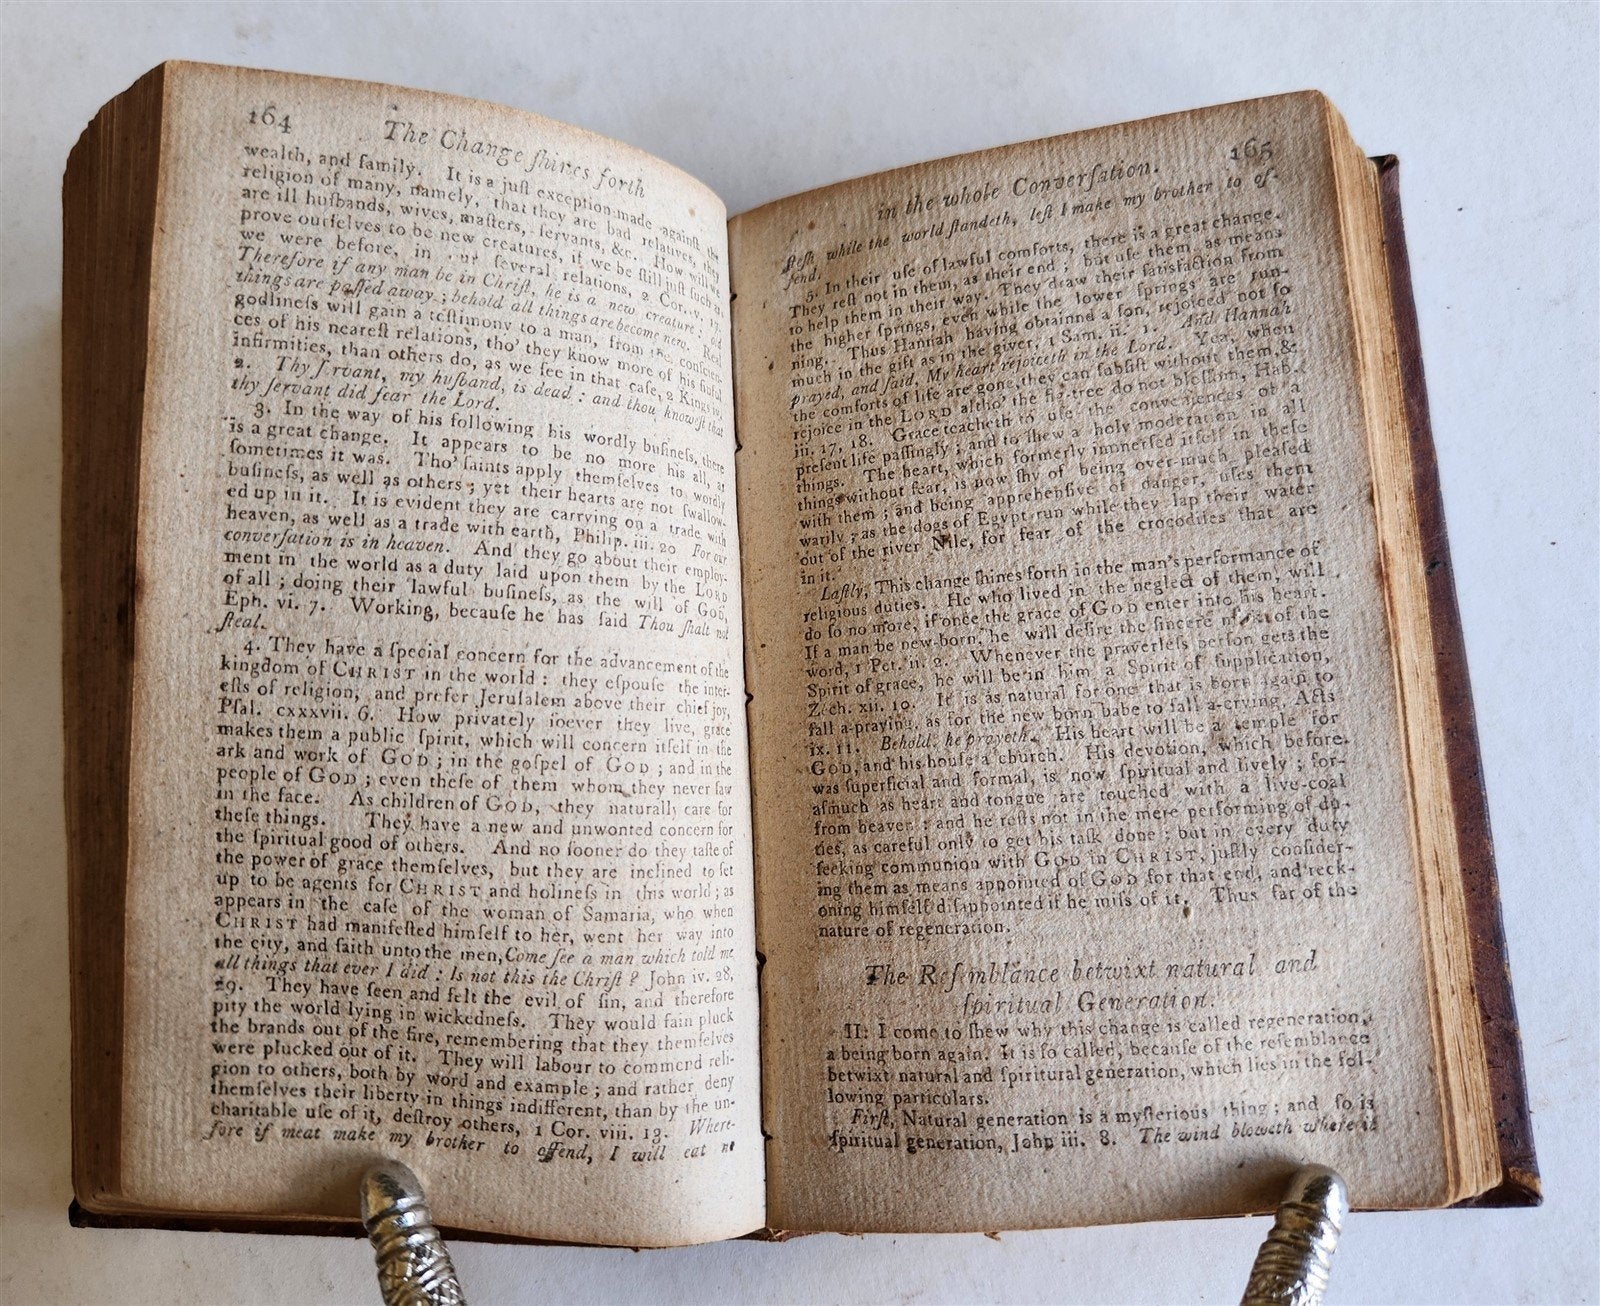 164
The Change ſhines forth
wealth, and family. It is a juſt exception made againſt the
religion of many, namely, that they are bad relatives, they
are ill huſbands, wives, maſters, ſervants, &c. How will we
prove ourſelves to be new creatures, if we be ſtill juſt ſuch as
we were before, in our ſeveral relations, 2 Cor. v. 17.
Therefore if any man be in Chriſt, he is a new creature: old
things are paſſed away; behold all things are become new. Real
godlineſs will gain a teſtimony to a man, from the conſcien-
ces of his neareſt relations, tho' they know more of his ſinful
infirmities, than others do, as we ſee in that caſe, 2 Kings iv.
2. Thy ſervant, my huſband, is dead: and thou knoweſt that
thy ſervant did fear the Lord.
3. In the way of his following his wordly buſineſs, there
is a great change. It appears to be no more his all, as
ſometimes it was. Tho' ſaints apply themſelves to wordly
buſineſs, as well as others; yet their hearts are not ſwallow-
ed up in it. It is evident they are carrying on a trade with
heaven, as well as a trade with earth, Philip. iii. 20 For our
converſation is in heaven. And they go about their employ-
ment in the world as a duty laid upon them by the LORD
of all; doing their lawful buſineſs, as the will of God,
Eph. vi. 7. Working, becauſe he has ſaid Thou ſhalt not
ſteal.
4. They have a ſpecial concern for the advancement of the
kingdom of CHRIST in the world: they eſpouſe the inter-
eſts of religion, and prefer Jeruſalem above their chief joy,
Pſal. cxxxvii. 6. How privately ſoever they live, grace
makes them a public ſpirit, which will concern itſelf in the
ark and work of GOD; in the goſpel of GOD; and in the
people of GOD; even theſe of them whom they never ſaw
in the face. As children of GOD, they naturally care for
theſe things. They have a new and unwonted concern for
the ſpiritual good of others. And no ſooner do they taſte of
the power of grace themſelves, but they are inclined to ſet
up to be agents for CHRIST and holineſs in this world; as
appears in the caſe of the woman of Samaria, who when
CHRIST had manifeſted himſelf to her, went her way into
the city, and ſaith unto the men, Come ſee a man which told me
all things that ever I did: Is not this the Chriſt? John iv. 28,
29. They have ſeen and felt the evil of ſin, and therefore
pity the world lying in wickedneſs. They would fain pluck
the brands out of the fire, remembering that they themſelves
were plucked out of it. They will labour to commend reli-
gion to others, both by word and example; and rather deny
themſelves their liberty in things indifferent, than by the un-
charitable uſe of it, deſtroy others, 1 Cor. viii. 13. Where-
fore if meat make my brother to offend, I will eat no
165
in the whole Converſation.
fleſh while the world ſtandeth, leſt I make my brother to of-
fend.
5. In their uſe of lawful comforts, there is a great change.
They reſt not in them, as their end; but uſe them as means
to help them in their way. They draw their ſatisfaction from
the higher ſprings, even while the lower ſprings are run-
ning. Thus Hannah having obtainnd a ſon, rejoiced not ſo
much in the gift as in the giver, 1 Sam. ii. 1. And Hannah
prayed, and ſaid, My heart rejoiceth in the Lord. Yea, when
the comforts of life are gone, they can ſubſiſt without them, &
rejoice in the LORD altho' the fig-tree do not bloſſom, Hab.
iii. 17, 18. Grace teacheth to uſe the conveniences of a
preſent life paſſingly; and to ſhew a holy moderation in all
things. The heart, which formerly immerſed itſelf in theſe
things without fear, is now ſhy of being over-much pleaſed
with them; and being apprehenſive of danger, uſes them
warily; as the dogs of Egypt run while they lap their water
out of the river Nile, for fear of the crocodiles that are
in it.
Laſtly, This change ſhines forth in the man's performance of
religious duties. He who lived in the neglect of them, will
do ſo no more, if once the grace of GOD enter into his heart.
If a man be new-born, he will deſire the ſincere milk of the
word, 1 Pet. ii. 2. Whenever the prayerleſs perſon gets the
Spirit of grace, he will be in him a Spirit of ſupplication,
Zech. xii. 10. It is as natural for one that is born again to
fall a-praying, as for the new born babe to fall a-crying, Acts
ix. 11. Behold, he prayeth. His heart will be a temple for
GOD, and his houſe a church. His devotion, which before
was ſuperficial and formal, is now ſpiritual and lively; for-
aſmuch as heart and tongue are touched with a live-coal
from heaven: and he reſts not in the mere performing of du-
ties, as careful only to get his taſk done: but in every duty
ſeeking communion with GOD in CHRIST, juſtly conſider-
ing them as means appointed of GOD for that end, and reck-
oning himſelf diſappointed if he miſs of it. Thus far of the
nature of regeneration.
The Reſemblance betwixt natural and
ſpiritual Generation.
II: I come to ſhew why this change is called regeneration,
a being born again. It is ſo called, becauſe of the reſemblance
betwixt natural and ſpiritural generation, which lies in the fol-
lowing particulars.
Firſt, Natural generation is a myſterious thing; and ſo is
ſpiritual generation, John iii. 8. The wind bloweth where it